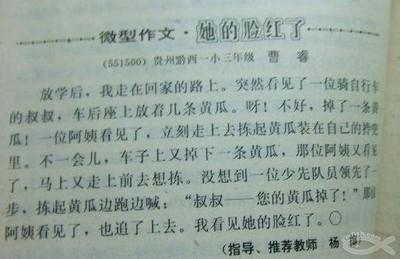 微型作文·她的脸红了
(551500) 贵州黔西一小三年级 曹睿
放学后，我走在回家的路上。突然看见了一位骑自行车
的叔叔，车后座上放着几条黄瓜。呀！不好，掉了一条黄
瓜！一位阿姨看见了，立刻走上去拣起黄瓜装在自己的挎兜
里。不一会儿，车子上又掉下一条黄瓜，那位阿姨又看见
了，马上又走上前去想拣。没想到一位少先队员领先了一
步，拣起黄瓜边跑边喊：“叔叔——您的黄瓜掉了！”那位
阿姨看见了，也追了上去。我看见她的脸红了。〇
(指导、推荐教师 杨